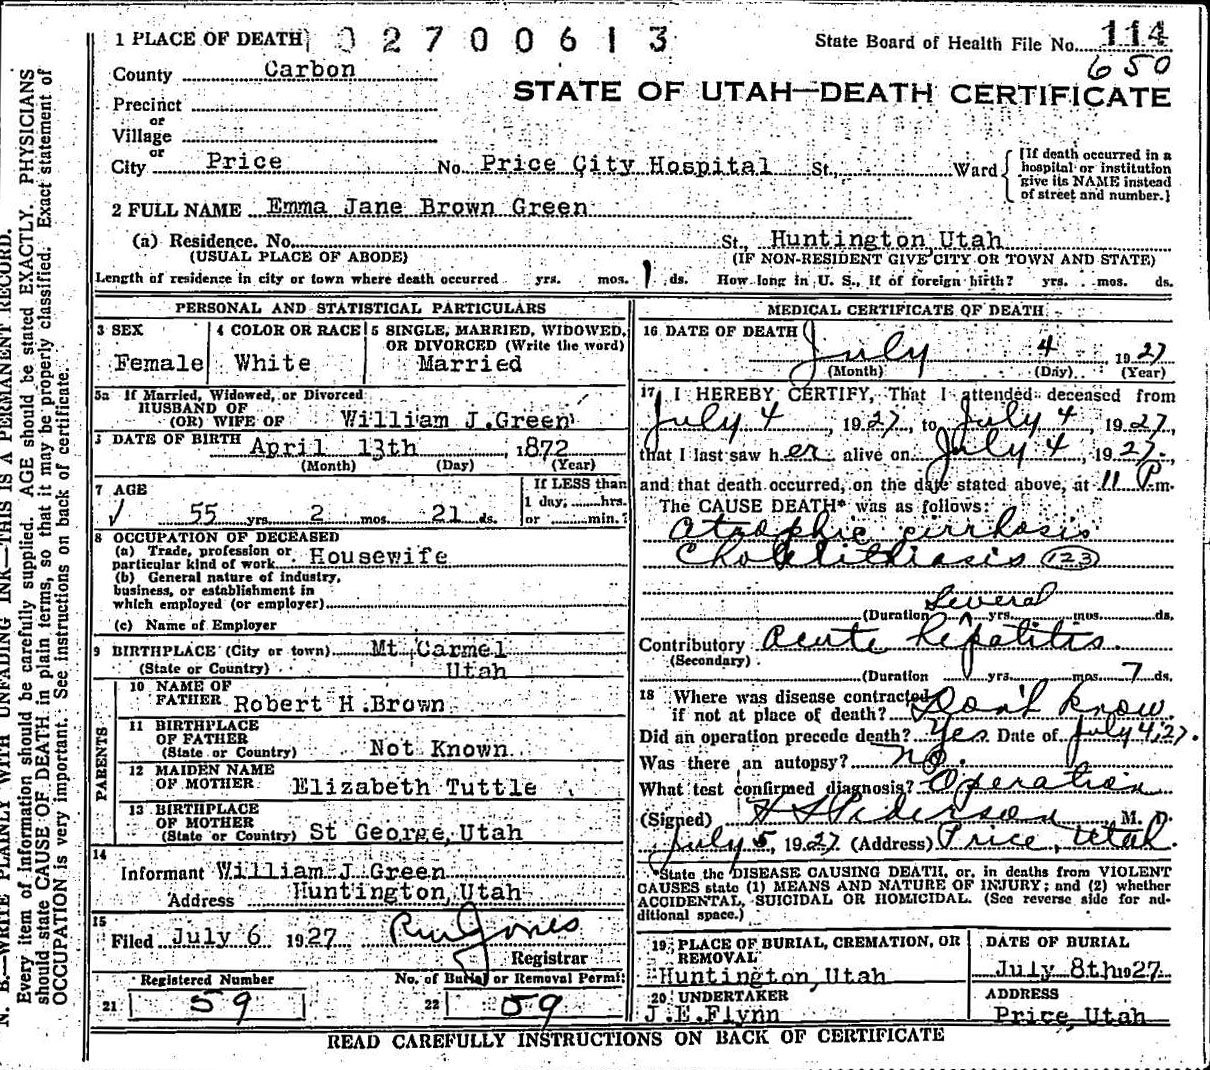 1 PLACE OF DEATH 02700613 State Board of Health File No. 114
650
County Carbon
STATE OF UTAH—DEATH CERTIFICATE
Precinct
or
Village
or
City Price No. Price City Hospital St., Ward
[If death occurred in a hospital or institution give its NAME instead of street and number.]
2 FULL NAME Emma Jane Brown Green
(a) Residence. No. St., Huntington, Utah
(USUAL PLACE OF ABODE) (IF NON-RESIDENT GIVE CITY OR TOWN AND STATE)
Length of residence in city or town where death occurred yrs. mos. 1 ds. How long in U. S., if of foreign birth? yrs. mos. ds.
PERSONAL AND STATISTICAL PARTICULARS
3 SEX
Female
4 COLOR OR RACE
White
5 SINGLE, MARRIED, WIDOWED, OR DIVORCED (Write the word)
Married
5a If Married, Widowed, or Divorced
HUSBAND OF
(OR) WIFE OF William J. Green
DATE OF BIRTH April 13th, 1872
(Month) (Day) (Year)
7 AGE
55 yrs. 2 mos. 21 ds.
If LESS than
1 day, hrs.
or min.?
8 OCCUPATION OF DECEASED
(a) Trade, profession or
particular kind of work Housewife
(b) General nature of industry,
business, or establishment in
which employed (or employer)
(c) Name of Employer
9 BIRTHPLACE (City or town) Mt Carmel
(State or Country) Utah
PARENTS
10 NAME OF
FATHER Robert H. Brown
11 BIRTHPLACE
OF FATHER
(State or Country) Not Known
12 MAIDEN NAME
OF MOTHER Elizabeth Tuttle
13 BIRTHPLACE
OF MOTHER
(State or Country) St George, Utah
14
Informant William J. Green
Address Huntington, Utah
15
Filed July 6 1927 Jones
Registrar
Registered Number No. of Burial or Removal Permit
21 59 22 59
MEDICAL CERTIFICATE OF DEATH
16 DATE OF DEATH
July 4 1927
(Month) (Day) (Year)
17 I HEREBY CERTIFY, That I attended deceased from
July 4, 1927, to July 4, 1927,
that I last saw her alive on July 4, 1927.
and that death occurred, on the date stated above, at 11 P.m.
The CAUSE DEATH* was as follows:
Atrophic cirrhosis
Cholelithiasis (123)
(Duration Several yrs. mos. ds.
Contributory Acute hepatitis.
(Secondary)
(Duration yrs. mos. 7 ds.
18 Where was disease contracted
if not at place of death? Don't know
Did an operation precede death? Yes. Date of July 4, 27.
Was there an autopsy? No.
What test confirmed diagnosis? Operation
(Signed) Pederson, M. D.
July 5, 1927 (Address) Price, Utah.
*State the DISEASE CAUSING DEATH, or, in deaths from VIOLENT
CAUSES state (1) MEANS AND NATURE OF INJURY; and (2) whether
ACCIDENTAL, SUICIDAL OR HOMICIDAL. (See reverse side for ad-
ditional space.)
19 PLACE OF BURIAL, CREMATION, OR
REMOVAL
Huntington, Utah
DATE OF BURIAL
July 8th 1927
20 UNDERTAKER
J.E.Flynn
ADDRESS
Price, Utah
READ CAREFULLY INSTRUCTIONS ON BACK OF CERTIFICATE
N. B.—WRITE PLAINLY WITH UNFADING INK—THIS IS A PERMANENT RECORD.
Every item of information should be carefully supplied. AGE should be stated EXACTLY. PHYSICIANS
should state CAUSE OF DEATH in plain terms, so that it may be properly classified. Exact statement of
OCCUPATION is very important. See instructions on back of certificate.